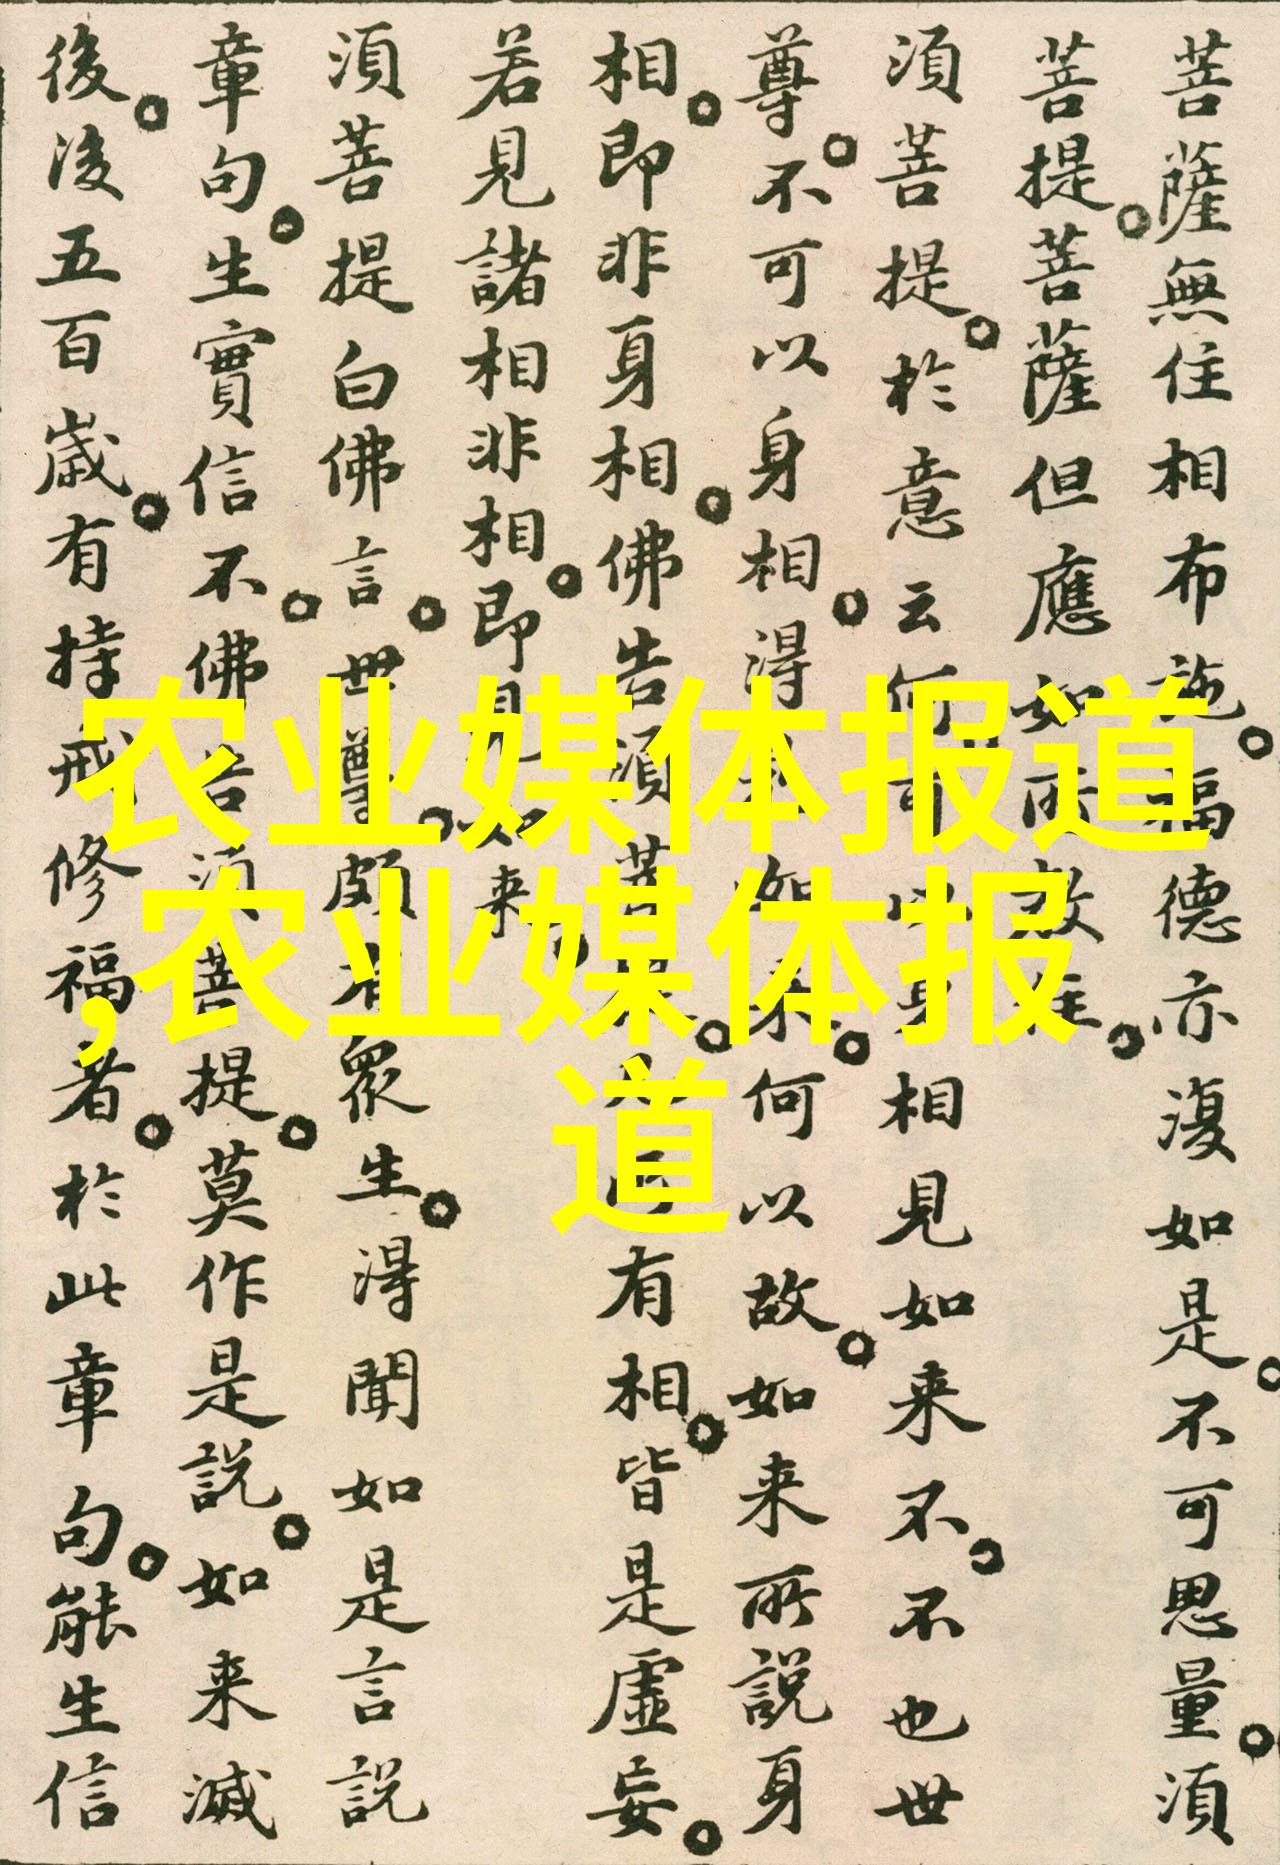 菩薩無住相布施福德亦復如是不可思量須
菩提菩薩但應如所教住
須菩提於意云何可以身相見如来不不也世
尊不可以身相得見如来何以故如来所說身
相即非身相佛告須菩提凡所有相皆是虛妄
若見諸相非相即見如来
須菩提白佛言世尊頗有衆生得聞如是言說
章句生實信不佛告須菩提莫作是說如来滅
後後五百歲有持戒修福者於此章句能生信
农业媒体报道
,农业媒体报
道